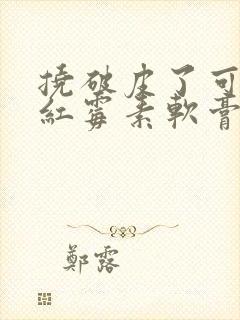 撓破皮了可
紅霉素軟膏
鄭露